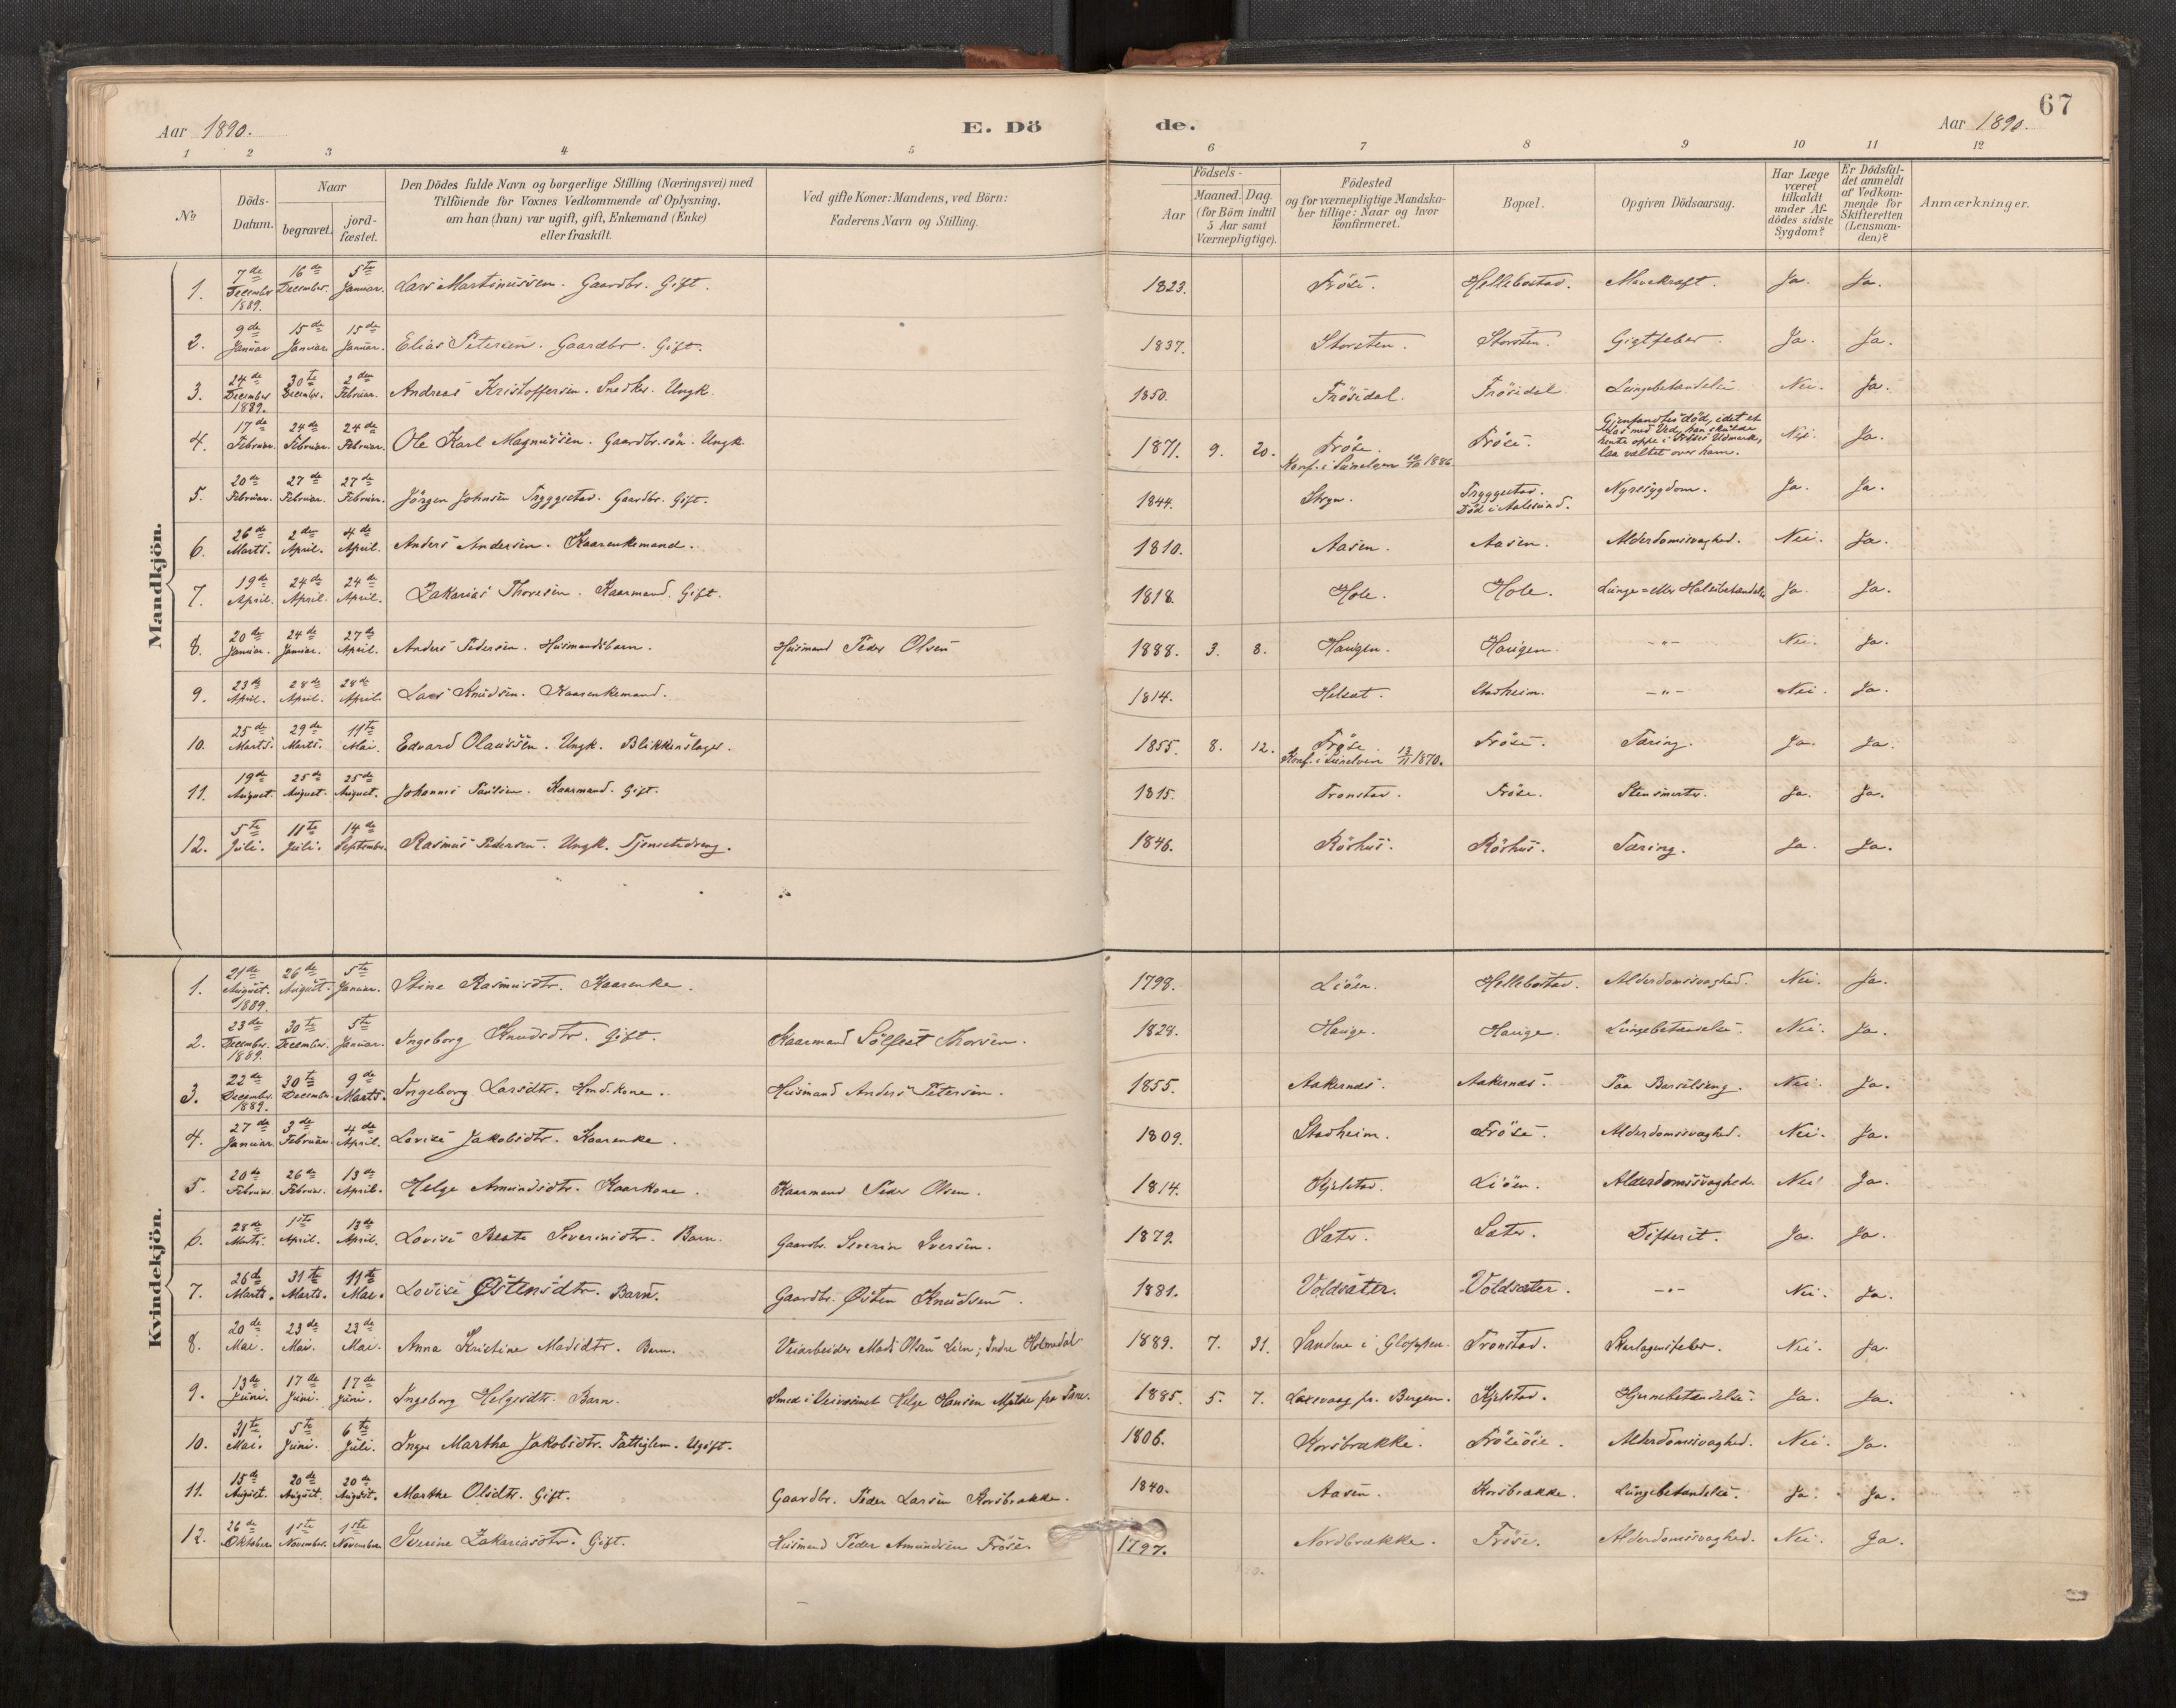 67
Aar 1890. E. Dö de. Aar 1890.
1 2 3 4 5 6 7 8 9 10 11 12
№
Döds-Datum.
Naar
begravet.
jord-fæstet.
Den Dödes fulde Navn og borgerlige Stilling (Næringsvei) med
Tilföiende for Voxnes Vedkommende af Oplysning,
om han (hun) var ugift, gift, Enkemand (Enke)
eller fraskilt.
Ved gifte Koner: Mandens, ved Börn:
Faderens Navn og Stilling.
Födsels-
Aar
Maaned. Dag.
(for Börn indtil
5 Aar samt
Værnepligtige).
Födested
og for værnepligtige Mandska-
ber tillige: Naar og hvor
konfirmeret.
Bopæl.
Opgiven Dödsaarsag.
Har Læge
været
tilkaldt
under Af-
dödes sidste
Sygdom?
Er Dödsfal-
det anmeldt
af Vedkom-
mende for
Skifteretten
(Lensman-
den)?
Anmærkninger.
Mandkjön.
1. 7de December 1889. 16de December. 5te Januar. Lars Martinussen. Gaardbr. Gift. 1823. Fröise. Hellebostad. Mavekræft. Ja. Ja.
2. 9de Januar 15de Januar 15de Januar. Elias Petersen. Gaardbr. Gift. 1837. Storsten. Storsten. Gigtfeber. Ja. Ja.
3. 24de December 1889. 30te December. 2den Februar. Andreas Kristoffersen. Snedker. Ungk. 1850. Fröisedal. Fröisedal. Lungebetændelse Nei. Ja.
4. 17de Februar. 24de Februar. 24de Februar. Ole Karl Magnussen. Gaardbr.sön. Ungk. 1871. 9. 20. Fröise. Konf. i Sunelven 10/10 1886. Fröise. Gjenfandtes död, idet et Læs med Ved, han skulde hente oppe i Fröises Udmark, laa væltet over ham. Nei. Ja.
5. 20de Februar. 27de Februar. 27de Februar. Jörgen Johnsen Tryggestad. Gaardbr. Gift. 1844. Stryn. Tryggestad. Död i Aalesund. Nyresygdom. Ja. Ja.
6. 26de Marts. 2den April. 4de April. Anders Andersen. Kaarenkemand. 1810. Aasen. Aasen. Alderdomssvaghed. Nei. Ja.
7. 19de April. 24de April. 24de April. Zakarias Thoresen. Kaarmand. Gift. 1818. Hole. Hole. Lunge- eller Halsbetændelse Ja. Ja.
8. 20de Januar. 24de Januar. 27de April. Anders Pedersen. Husmandsbarn. Husmand Peder Olsen 1888. 3. 8. Haugen. Haugen. -"- Nei. Ja.
9. 23de April. 28de April. 28de April. Lars Knudsen. Kaarenkemand. 1814. Helset. Stadheim. -"- Nei. Ja.
10. 25de Marts. 29de Marts. 11te Mai. Edvard Olaussen. Ungk. Blikkenslager. 1855. 8. 12. Fröise. Konf. i Sunelven 13/11 1870. Fröise. Tæring. Ja. Ja.
11. 19de August. 25de August. 25de August. Johannes Paulsen. Kaarmand. Gift. 1815. Tronstad. Fröise. Stensmerter. Ja. Ja.
12. 5te Juli. 11te Juli. 14de September. Rasmus Pedersen. Ungk. Tjenestedreng. 1846. Röshus. Röshus. Tæring. Ja. Ja.
Kvindekjön.
1. 21de August. 1889. 26de August. 5te Januar. Stine Rasmusdtr. Kaarenke. 1798. Liöen. Hellebostad. Alderdomssvaghed. Nei. Ja.
2. 23de December. 1889. 30te December. 5te Januar. Ingeborg Knudsdtr. Gift. Kaarmand Sölfest Thorsen. 1828. Hauge. Hauge. Lungebetændelse. Nei. Ja.
3. 22de December. 1889. 30te December. 9de Marts. Ingeborg Larsdtr. Hmd.kone. Husmand Anders Petersen. 1855. Aakernes. Aakernes. Paa Barselseng. Nei. Ja.
4. 27de Januar. 3de Februar. 4de April. Lovise Jakobsdtr. Kaarenke. 1809. Stadheim. Fröise. Alderdomssvaghed. Nei. Ja.
5. 20de Februar. 26de Februar. 13de April. Helge Amundsdtr. Kaarkone. Kaarmand Peder Olsen. 1814. Kjelstad. Liöen. Alderdomssvaghed. Nei. Ja.
6. 28de Marts. 1ste April. 13de April. Lovise Beate Severinsdtr. Barn. Gaardbr. Severin Iversen. 1879. Sæter. Sæter. Difterit. Ja. Ja.
7. 26de Marts. 31te Marts. 11te Mai. Lovise Østensdtr. Barn. Gaardbr. Østen Knudsen. 1881. Voldsæter. Voldsæter. -"- Nei. Ja.
8. 20de Mai. 23de Mai. 23de Mai. Anna Kristine Madsdtr. Barn. Veiarbeider Mads Olsen Lien, Indre Holmedal 1889. 7. 31. Sandene i Gloppen. Tronstad. Skarlagensfeber. Nei. Ja.
9. 13de Juni. 17de Juni. 17de Juni. Ingeborg Helgesdtr. Barn. Smed i Veivæsenet Helge Hansen Mjelde fra 1885. 5. 7. Laxevaag pr. Bergen. Kjelstad. Hjernebetændelse. Ja. Ja.
10. 31te Mai. 5te Juni. 6te Juli. Inger Martha Jakobsdtr. Fattiglem. Ugift. 1806. Korsbrække. Fröiseöie. Alderdomssvaghed. Nei. Ja.
11. 15de August. 20de August. 20de August. Marthe Olsdtr. Gift. Gaardbr. Peder Larsen Korsbrække. 1840. Aasen. Korsbrække. Lungebetændelse. Ja. Ja.
12. 26de Oktober. 1ste November. 1ste November. Iverine Zakariasdtr. Gift. Husmand Peder Amundsen Fröise. 1797. Nordbrække. Fröise. Alderdomssvaghed. Nei. Ja.